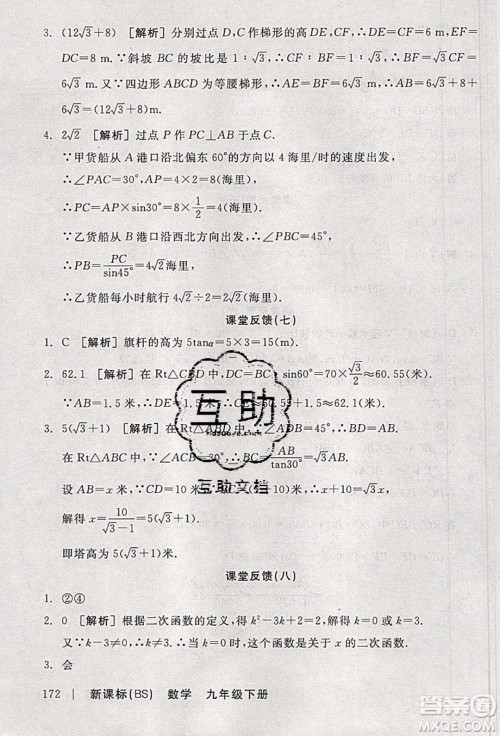 3. (12√3+8) [解析] 分别过点D,C作梯形的高DE,CF,
∴四边形DEFC是矩形,∴EF=DC=8 m,DE=CF=6 m.
∵斜坡BC的坡比是1:√3,∴BF=√3CF=√3DE=
6√3 m.又∵四边形ABCD为等腰梯形,∴AE=BF=
6√3 m,∴AB=AE+EF+BF=6√3+8+6√3=
(12√3+8)m.
4. 2√2 [解析] 过点P作PC⊥AB于点C.
∵甲货船从A港口沿北偏东60°的方向以4海里/时的速度出发,
∴∠PAC=30°,AP=4×2=8(海里),
∴PC=AP×sin30°=8×1/2=4(海里).
∵乙货船从B港口沿西北方向出发,∴∠PBC=45°,
∴PB=PC/sin45°=4√2(海里),
∴乙货船每小时航行4√2÷2=2√2(海里).
课堂反馈(七)
1. C [解析] 旗杆的高为5tanα=5×3=15(m).
2. 62.1 [解析] 在Rt△CBD中,DC=BC·sin60°=70×√3/2≈60.55(米).
∵AB=1.5米,∴DE=1.5米,∴CE≈60.55+1.5≈62.1(米).
3. 5(√3+1) [解析] 在Rt△ABC中,∠ACB=45°,∴BC=AB.
在Rt△ABD中,∠ADB=30°,∴BD=AB/tan30°=√3AB.
设AB=x米,∵CD=10米,∴√3x=x+10,
解得x=10/(√3-1)=5(√3+1).
即塔高为5(√3+1)米.
课堂反馈(八)
1. ②④
2. 0 [解析] 根据二次函数的定义,得k²-3k+2=2,解得k=0或k=3.又∵k-3≠0,∴k≠3.∴当k=0时,这个函数是关于x的二次函数.
3. 会
互助
互·助文档
172 新课标(BS) 数学 九年级下册